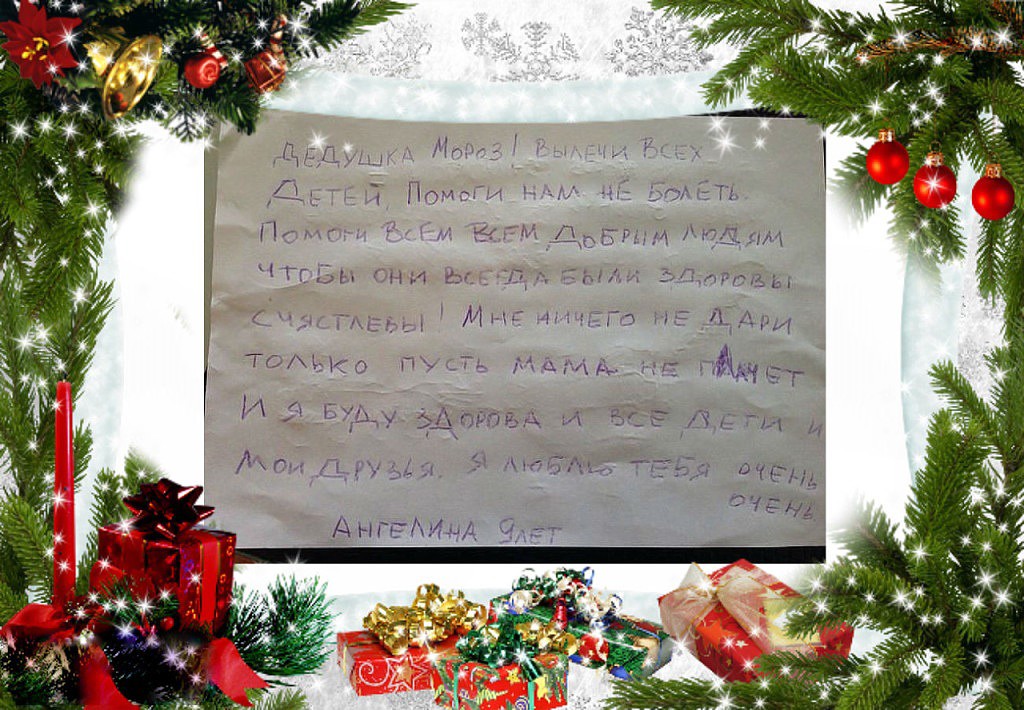 ДЕДУШКА МОРОЗ! ВЫЛЕЧИ ВСЕХ
ДЕТЕЙ, ПОМОГИ НАМ НЕ БОЛЕТЬ.
ПОМОГИ ВСЕМ ВСЕМ ДОБРЫМ ЛЮДЯМ
ЧТОБЫ ОНИ ВСЕГДА БЫЛИ ЗДОРОВЫ
СЧЯСТЛЕВЫ! МНЕ НИЧЕГО НЕ ДАРИ
ТОЛЬКО ПУСТЬ МАМА НЕ ПЛАЧЕТ
И Я БУДУ ЗДОРОВА И ВСЕ ДЕТИ И
МОИ ДРУЗЬЯ. Я ЛЮБЛЮ ТЕБЯ ОЧЕНЬ
ОЧЕНЬ
АНГЕЛИНА 9ЛЕТ